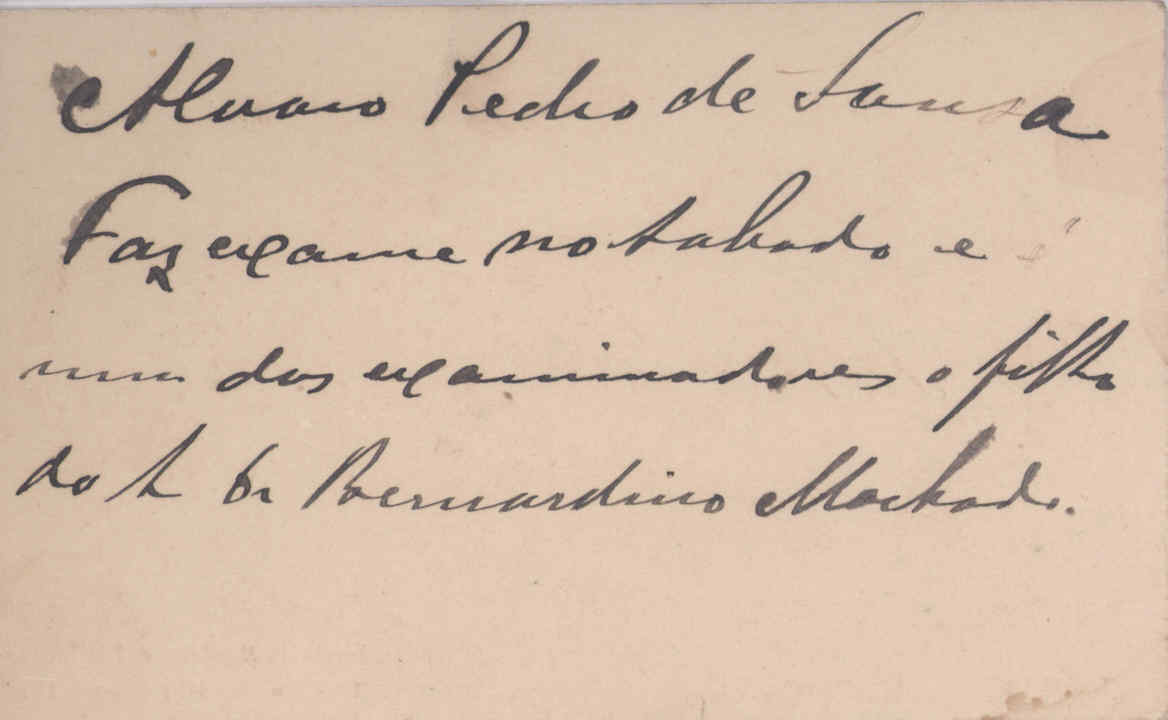 Alvaro Pedro de Sousa
Faz exame no sabado e é
um dos examinadores o filho
do Sr Dr Bernardino Machado.